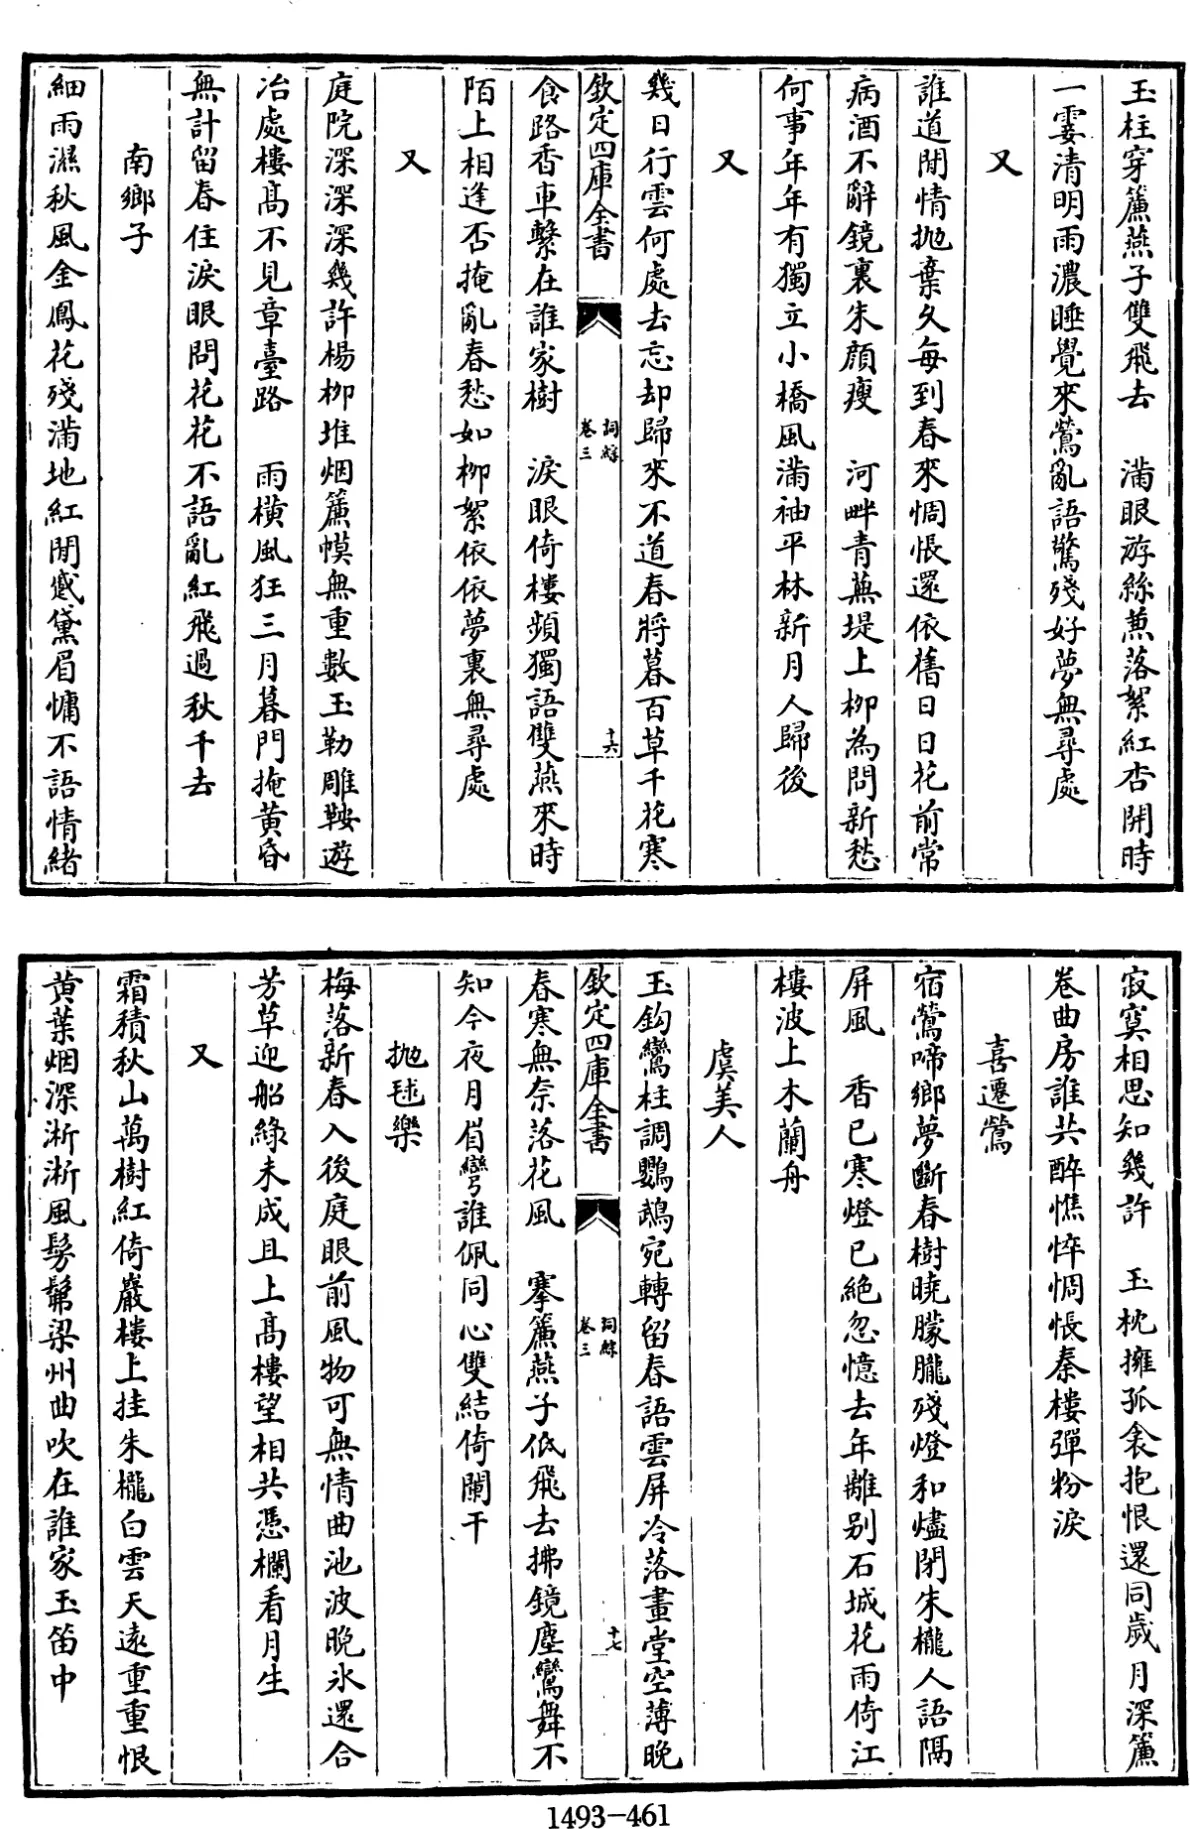 玉柱穿簾燕子雙飛去　滿眼游絲蒹落絮紅杏開時
一霎清明雨濃睡覺來鶯亂語驚殘好夢無尋處
又
誰道閒情抛棄久每到春來惆悵還依舊日日花前常
病酒不辭鏡裏朱顏瘦　河畔青蕪堤上柳為問新愁
何事年年有獨立小橋風滿袖平林新月人歸後
又
幾日行雲何處去忘却歸來不道春將暮百草千花寒
欽定四庫全書　詞綜　卷三　十六
食路香車繫在誰家樹　淚眼倚樓頻獨語雙燕來時
陌上相逢否掩亂春愁如柳絮依依夢裏無尋處
又
庭院深深深幾許楊柳堆烟簾幙無重數玉勒雕鞍遊
冶處樓髙不見章臺路　雨橫風狂三月暮門掩黄昏
無計留春住淚眼問花花不語亂紅飛過秋千去
南鄉子
細雨濕秋風金鳳花殘滿地紅閒蹙黛眉慵不語情緒
寂寞相思知幾許　玉枕擁孤衾抱恨還同歲月深簾
卷曲房誰共醉憔悴惆悵秦樓彈粉淚
喜遷鶯
宿鶯啼鄉夢斷春樹曉朦朧殘燈和燼閉朱櫳人語隔
屏風　香已寒燈已絶忽憶去年離别石城花雨倚江
樓波上木蘭舟
虞美人
玉鈎鸞柱調鸚鵡宛轉留春語雲屏冷落畫堂空薄晚
欽定四庫全書　詞綜　卷三　十七
春寒無奈落花風　搴簾燕子低飛去拂鏡塵鸞舞不
知今夜月眉彎誰佩同心雙結倚闌干
抛毬樂
梅落新春入後庭眼前風物可無情曲池波晚氷還合
芳草迎船綠未成且上髙樓望相共憑欄看月生
又
霜積秋山萬樹紅倚巖樓上挂朱櫳白雲天遠重重恨
黄葉烟深淅淅風髣髴梁州曲吹在誰家玉笛中
1493-461